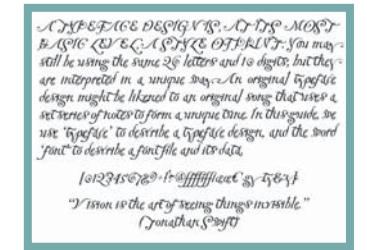 A TYPEFACE DESIGN IS, AT ITS MOST
BASIC LEVEL, A STYLE OF PRINT. You may
still be using the same 26 letters and 10 digits, but they
are interpreted in a unique way. An original typeface
design might be likened to an original song that uses a
set series of notes to form a unique tune. In this guide, we
use 'typeface' to describe a typeface design, and the word
'font' to describe a font file and its data.
"Vision is the art of seeing things invisible."
Jonathan Swift